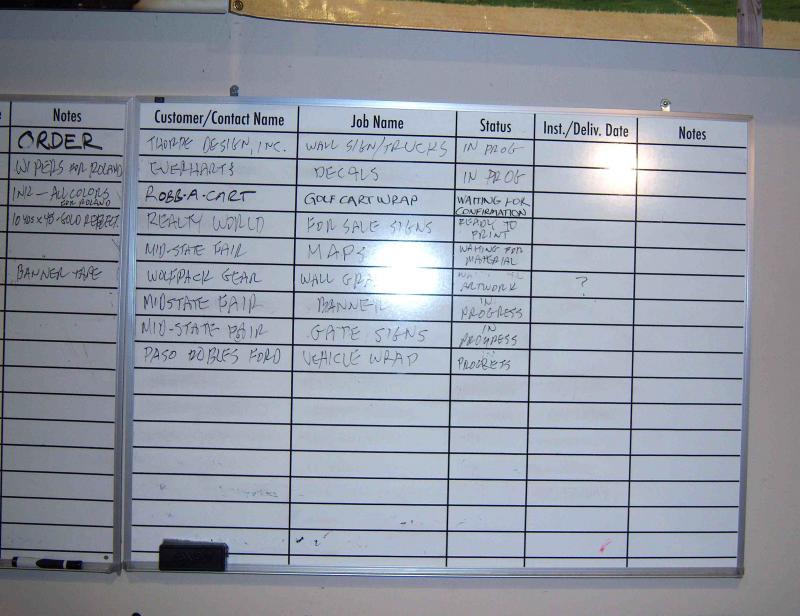 Notes
ORDER
WIPERS FOR ROLAND
INK - ALL COLORS
FOR ROLAND
BANNER TAPE
Customer/Contact Name Job Name Status Inst./Deliv. Date Notes
THORPE DESIGN, INC. WALL SIGN/TRUCKS IN PROG
EVERHARTS DECALS IN PROG
ROBB-A-CART GOLF CART WRAP WAITING FOR
CONFIRMATION
REALTY WORLD FOR SALE SIGNS READY TO
PRINT
MID-STATE FAIR MAPS WAITING FOR
MATERIAL
WOLFPACK GEAR WALL ARTWORK ?
MIDSTATE FAIR BANNER IN
PROGRESS
MID-STATE FAIR GATE SIGNS IN
PROGRESS
PASO ROBLES FORD VEHICLE WRAP PROGRESS